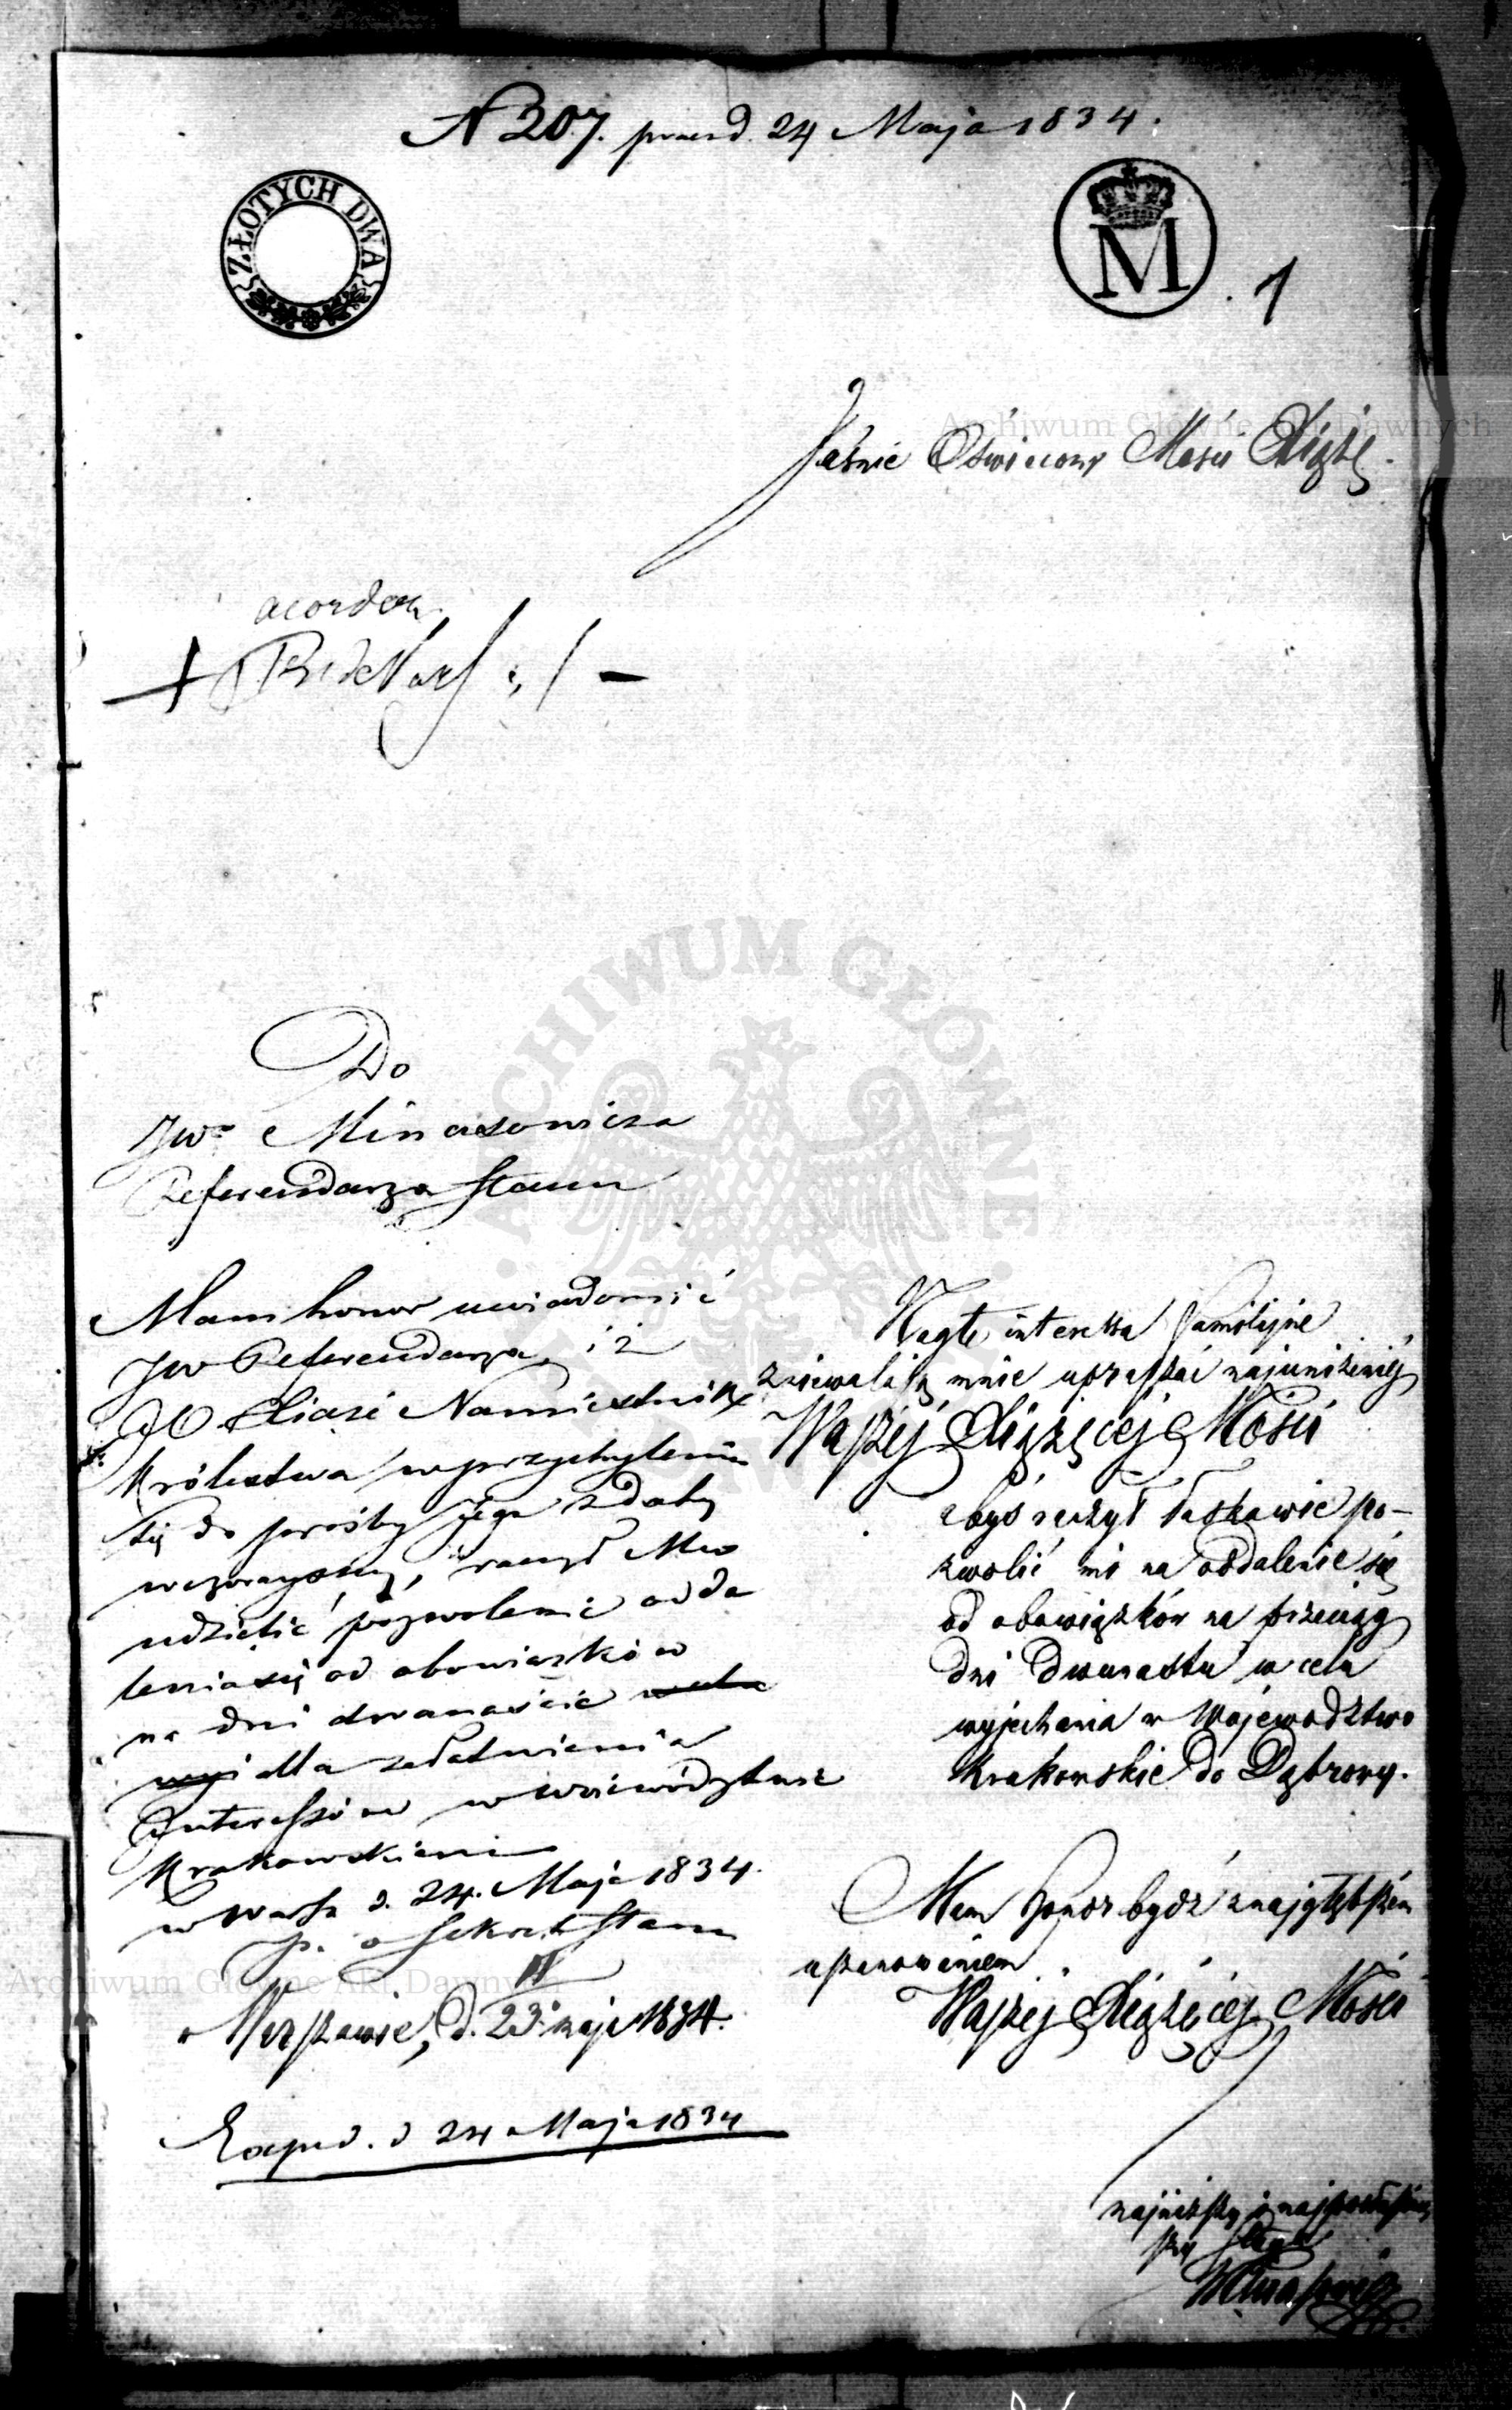 N 207. praesd. 24 Maja 1834.
ZŁOTYCH DWA
M
1
Jaśnie Oświecony Mości Xiążę.
Do
JWo Minasowicza
Referendarza Stanu
Mam honor uwiadomić
JW Referendarza, iż
JO Xiąże Namiestnik
Królestwa w przychyleniu
się do prośby jego z daty
wczorayszey, raczył Mu
udzielić pozwolenie odda
lenia się od obowiązków
na dni dwanaście
dla załatwienia
Interessów w Woiewództwie
Krakowskiem
w Warsz d. 24. Maja 1834.
p. o Sekret Stanu
w Warszawie, d. 23. maja 1834.
Exped. d 24 Maja 1834
Nagłe interessa familijne
zniewalają mnie upraszać najuniżeniéj
Waszéj Xiążęcéj Mości
abyś raczył łaskawie po-
zwolić mi na oddalenie się
od obowiązków na przeciąg
dni dwunastu w celu
wyjechania w Województwo
Krakowskie do Dąbrowy.
Mam honor bydź z najgłębszém
uszanowaniem
Waszéj Xiążęcéj Mości
najniższy i
szy sługa
ARCHIWUM GŁÓWNE AKT DAWNYCH
Archiwum Główne Akt Dawnych
Archiwum Główne Akt Dawnych